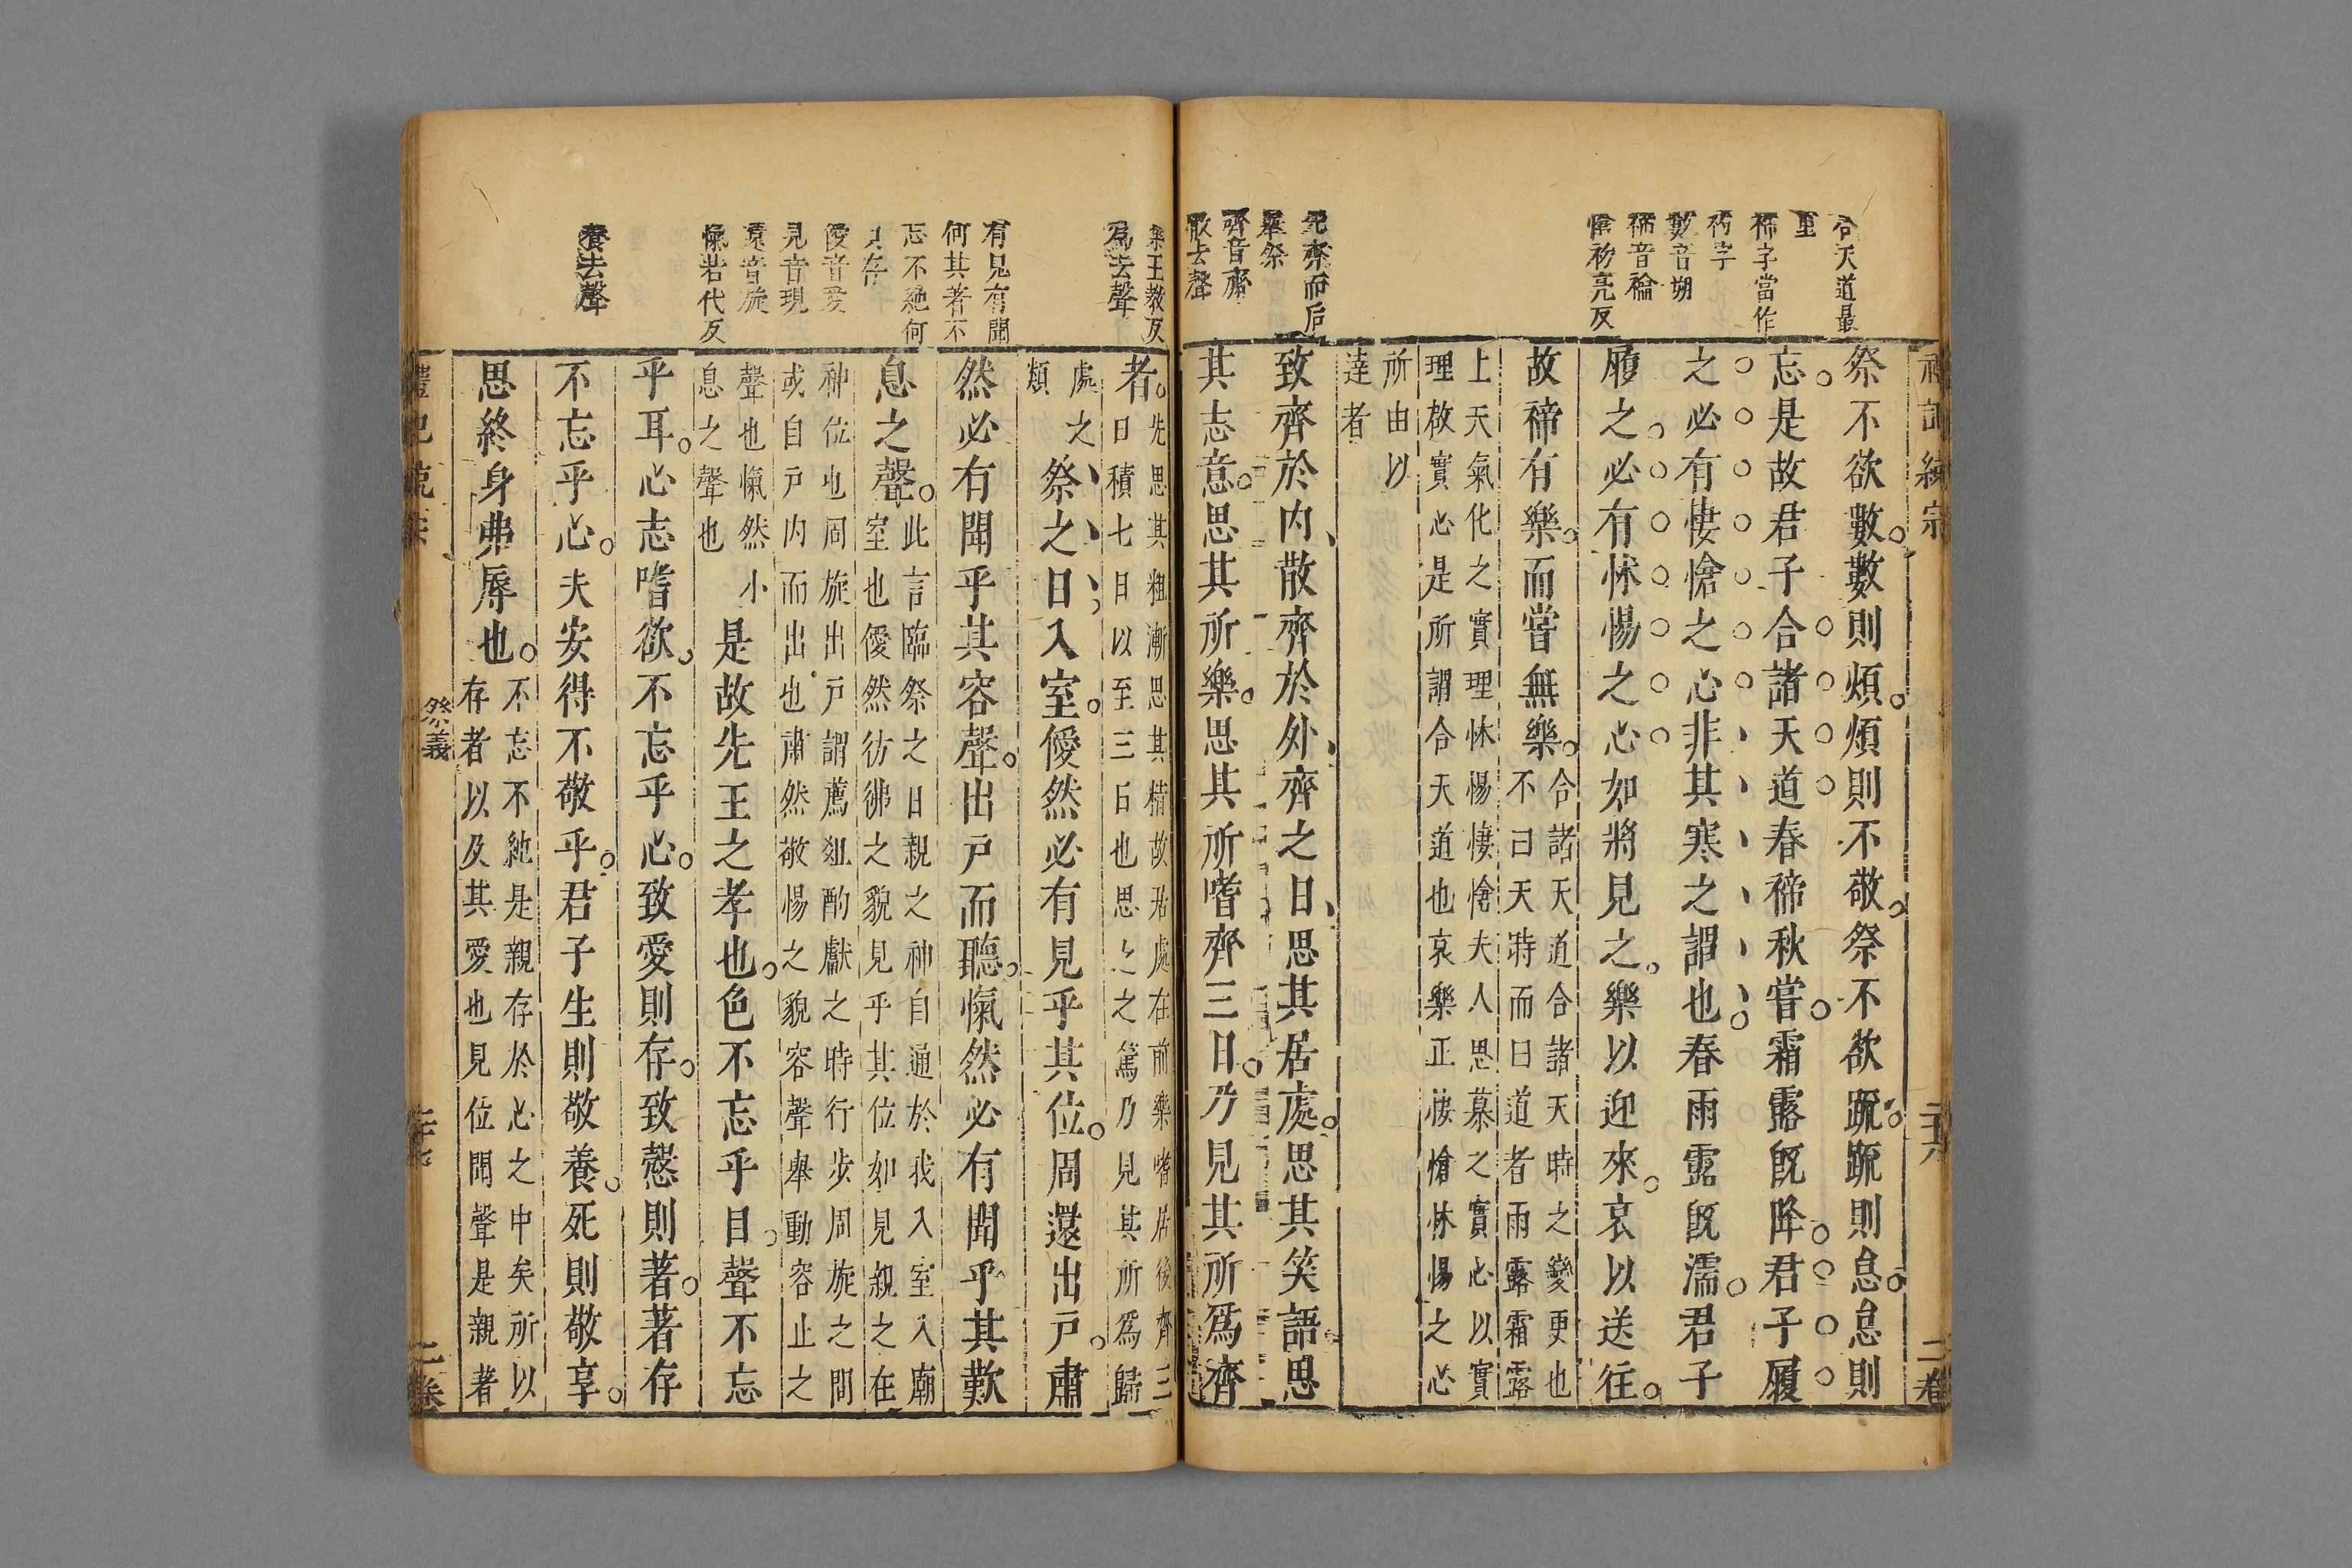 合天道最
重
禘字當作
礿字
數音朔
禘音禴
愴初亮反
先齊而后
舉祭
齊音齋
散去聲
祭不欲數數則煩煩則不敬祭不欲疏疏則怠怠則
忘是故君子合諸天道春禘秋嘗霜露既降君子履
之必有悽愴之心非其寒之謂也春雨露既濡君子
履之必有怵惕之心如將見之樂以迎來哀以送往
故禘有樂而嘗無樂
合諸天道合諸天時之變更也
不曰天時而曰道者雨露霜露
上天氣化之實理怵惕悽愴夫人思慕之實心以實
理啟實心是所謂合天道也哀樂正悽愴怵惕之心
所由以
達者
致齊於內散齊於外齊之日思其居處思其笑語思
其志意思其所樂思其所嗜齊三日乃見其所爲齊
樂王教反
爲去聲
有見有聞
何其著不
忘不絶何
其存
僾音愛
見音現
還音旋
愾苦代反
養去聲
者
先思其粗漸思其精故居處在前樂嗜居後齊三
日積七日以至三日也思之之篤乃見其所爲歸
處之
類
祭之日入室僾然必有見乎其位周還出戸肅
然必有聞乎其容聲出戸而聽愾然必有聞乎其歎
息之聲
此言臨祭之日親之神自通於我入室入廟
室也僾然彷彿之貌見乎其位如見親之在
神位也周旋出戸謂薦俎酌獻之時行步周旋之間
或自戸内而出也肅然敬惕之貌容聲舉動容止之
聲也愾然
息之聲也
小
是故先王之孝也色不忘乎目聲不忘
乎耳心志嗜欲不忘乎心致愛則存致慤則著著存
不忘乎心夫安得不敬乎君子生則敬養死則敬享
思終身弗辱也
不忘不絶是親存於心之中矣所以
存者以及其愛也見位聞聲是親著
祭義
二卷